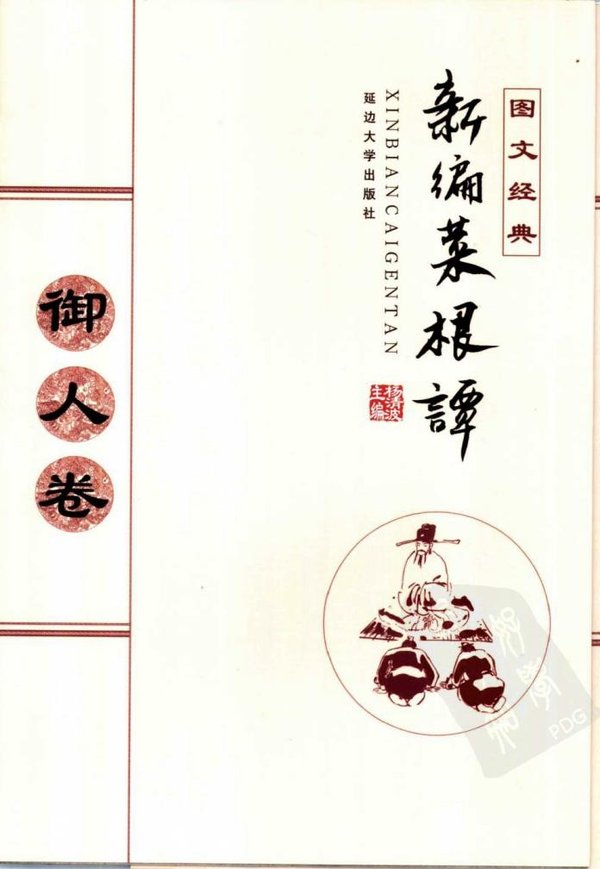 图文经典
新编菜根譚
XINBIANCAIGENTAN
延边大学出版社
杨清波
主编
御人卷
PDG